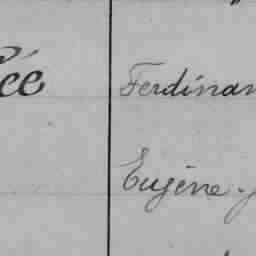 ée Ferdinan
Eugène-